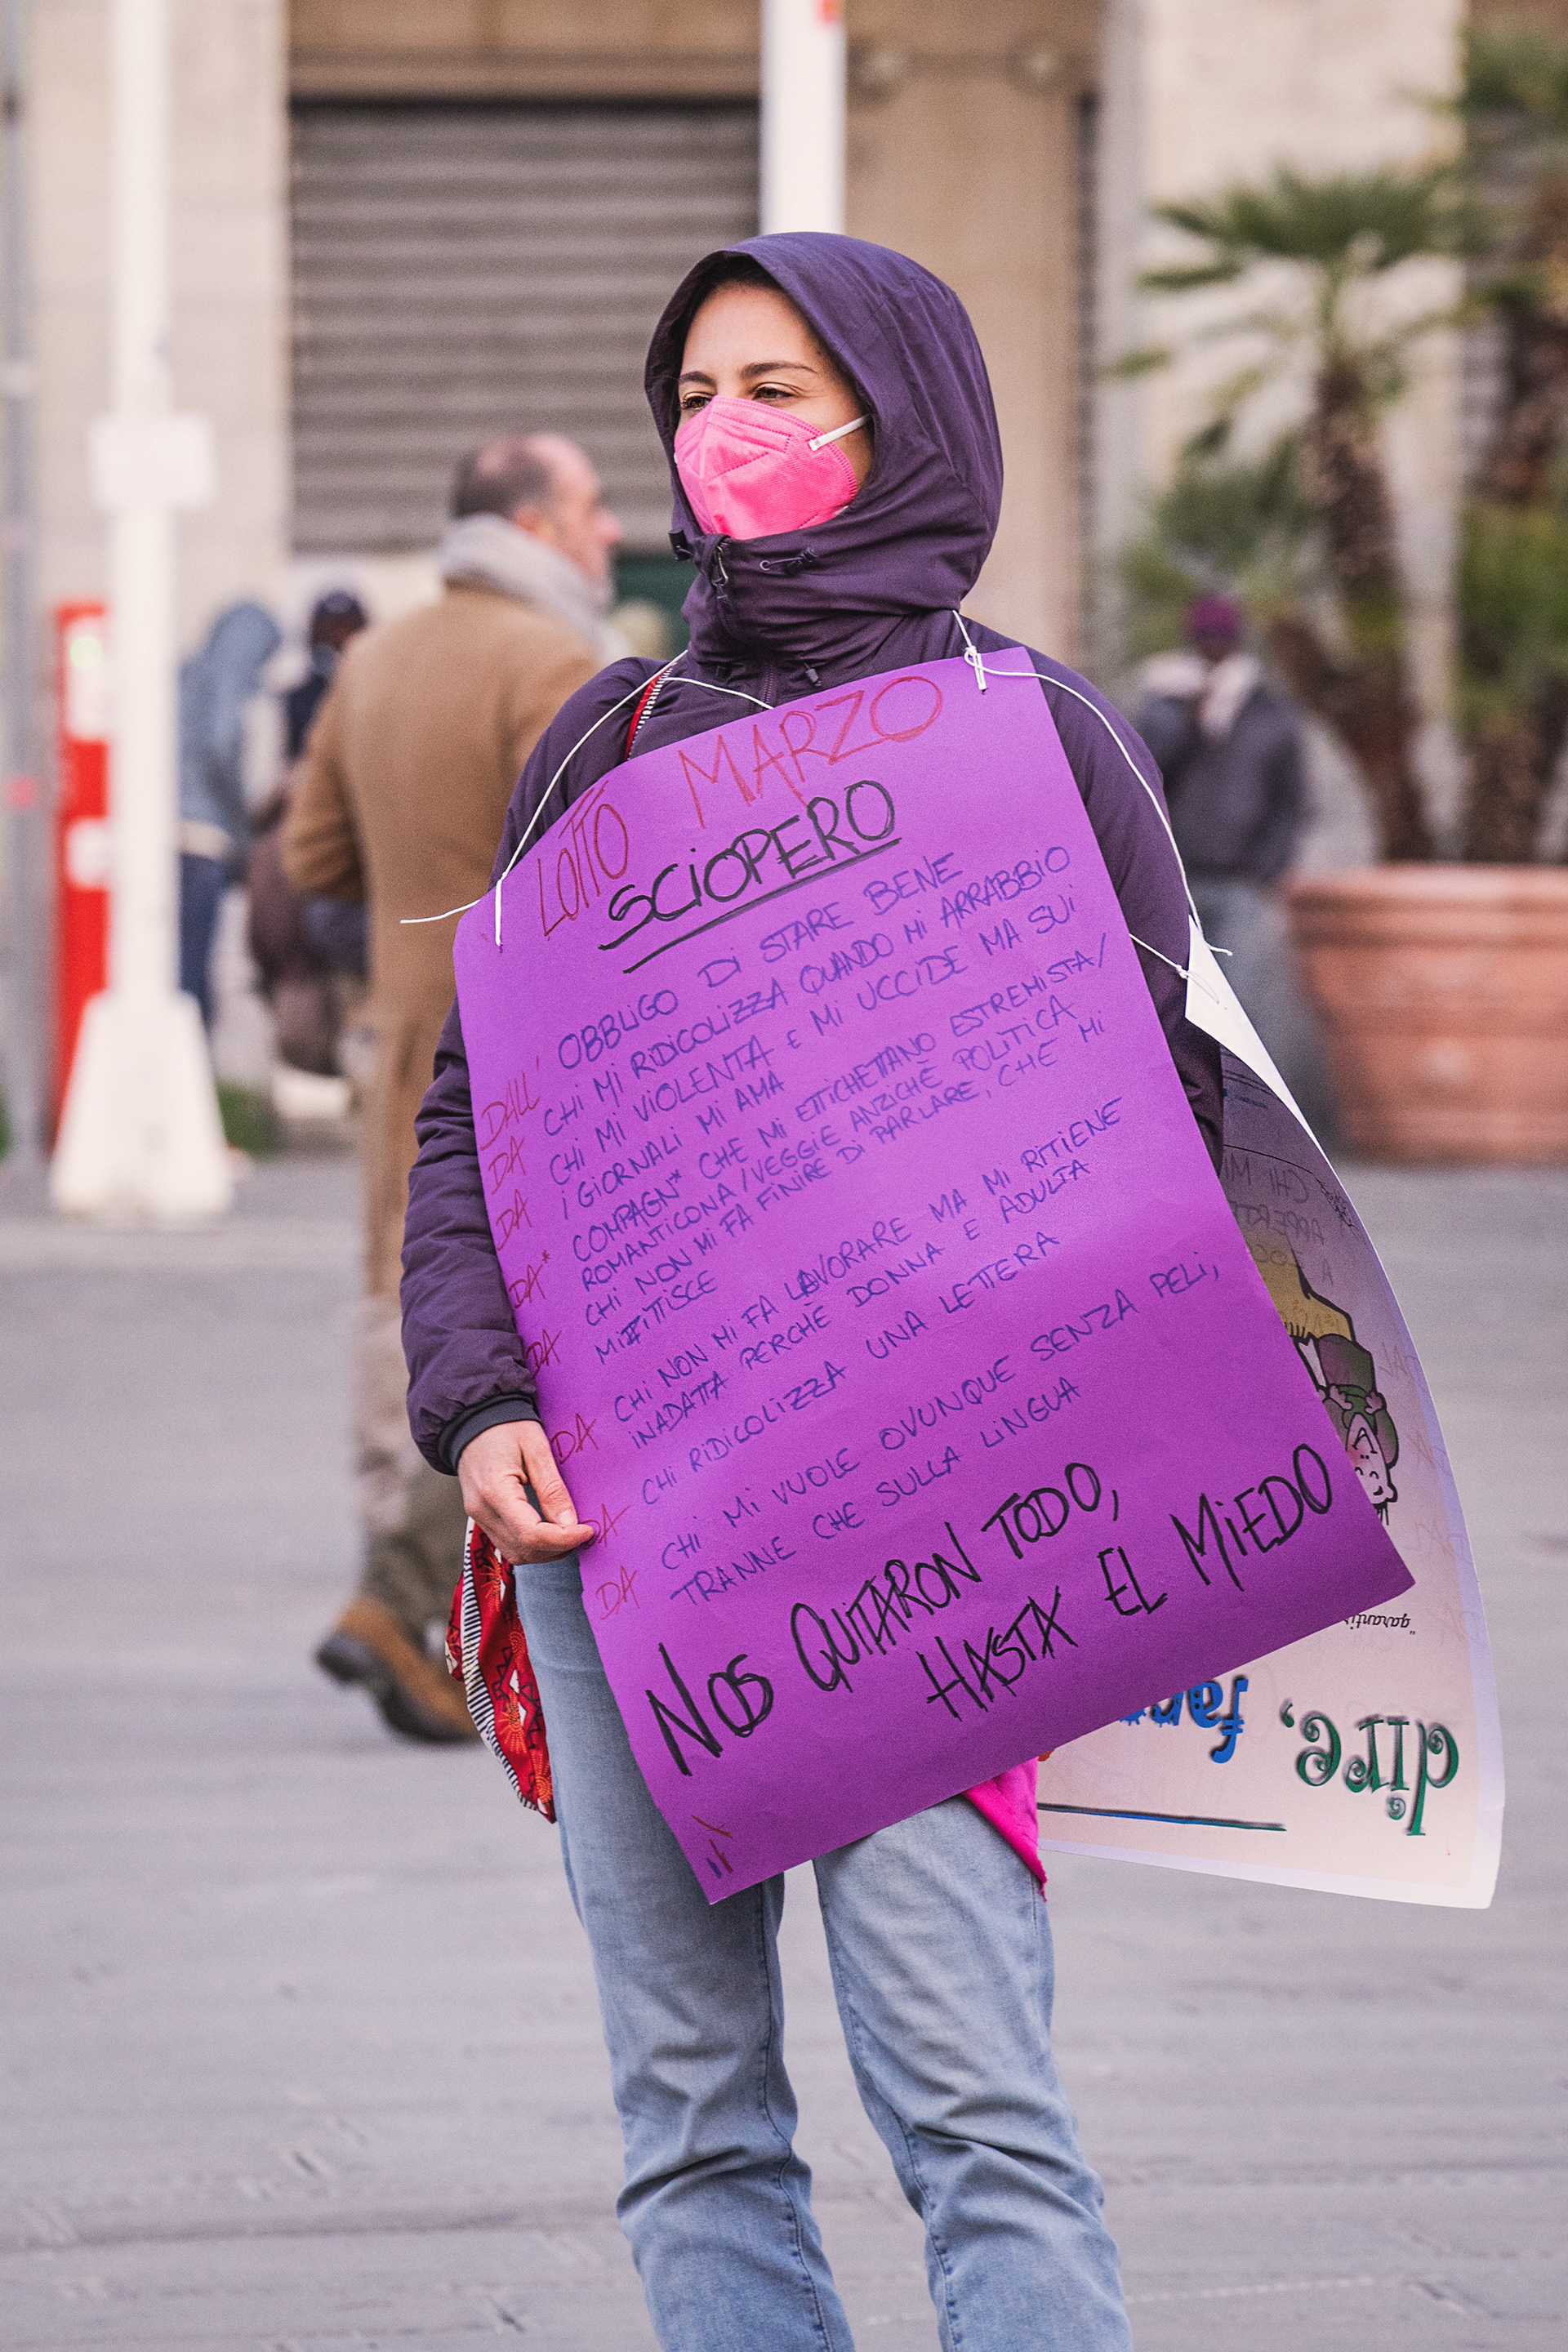 LOTTO MARZO
SCIOPERO
DALL' OBBLIGO DI STARE BENE
DA CHI MI RIDICOLIZZA QUANDO MI ARRABBIO
DA CHI MI VIOLENTA E MI UCCIDE MA SUI
I GIORNALI MI AMA
DA* COMPAGN* CHE MI ETICHETTANO ESTREMISTA/
ROMANTICONA/VEGGIE ANZICHE POLITICA
DA CHI NON MI FA FINIRE DI PARLARE, CHE MI
ZITTISCE
DA CHI NON MI FA LAVORARE MA MI RITIENE
INADATTA PERCHÈ DONNA E ADULTA
DA CHI RIDICOLIZZA UNA LETTERA
DA CHI MI VUOLE OVUNQUE SENZA PELI,
TRANNE CHE SULLA LINGUA
NOS QUITARON TODO,
HASTA EL MIEDO
dire,